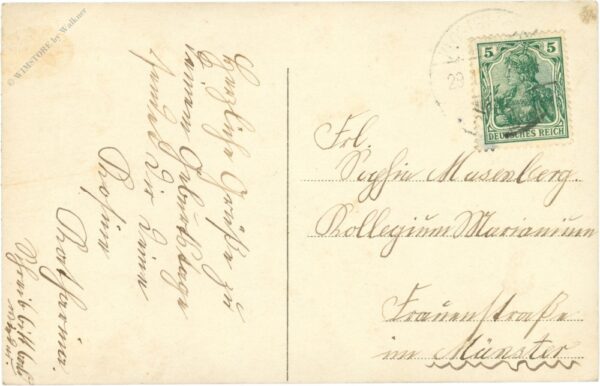 © WIMSTORE by Walkner
Herzliche Grüße zu
Deinem Geburtstage
sendet Dir Deine
Kosine
Katharina.
Schreib bitte bald
wieder
29
5 5
DEUTSCHES REICH
Frl.
Sophia Masenberg.
Kollegium Marianum
Frauenstraße
in Münster